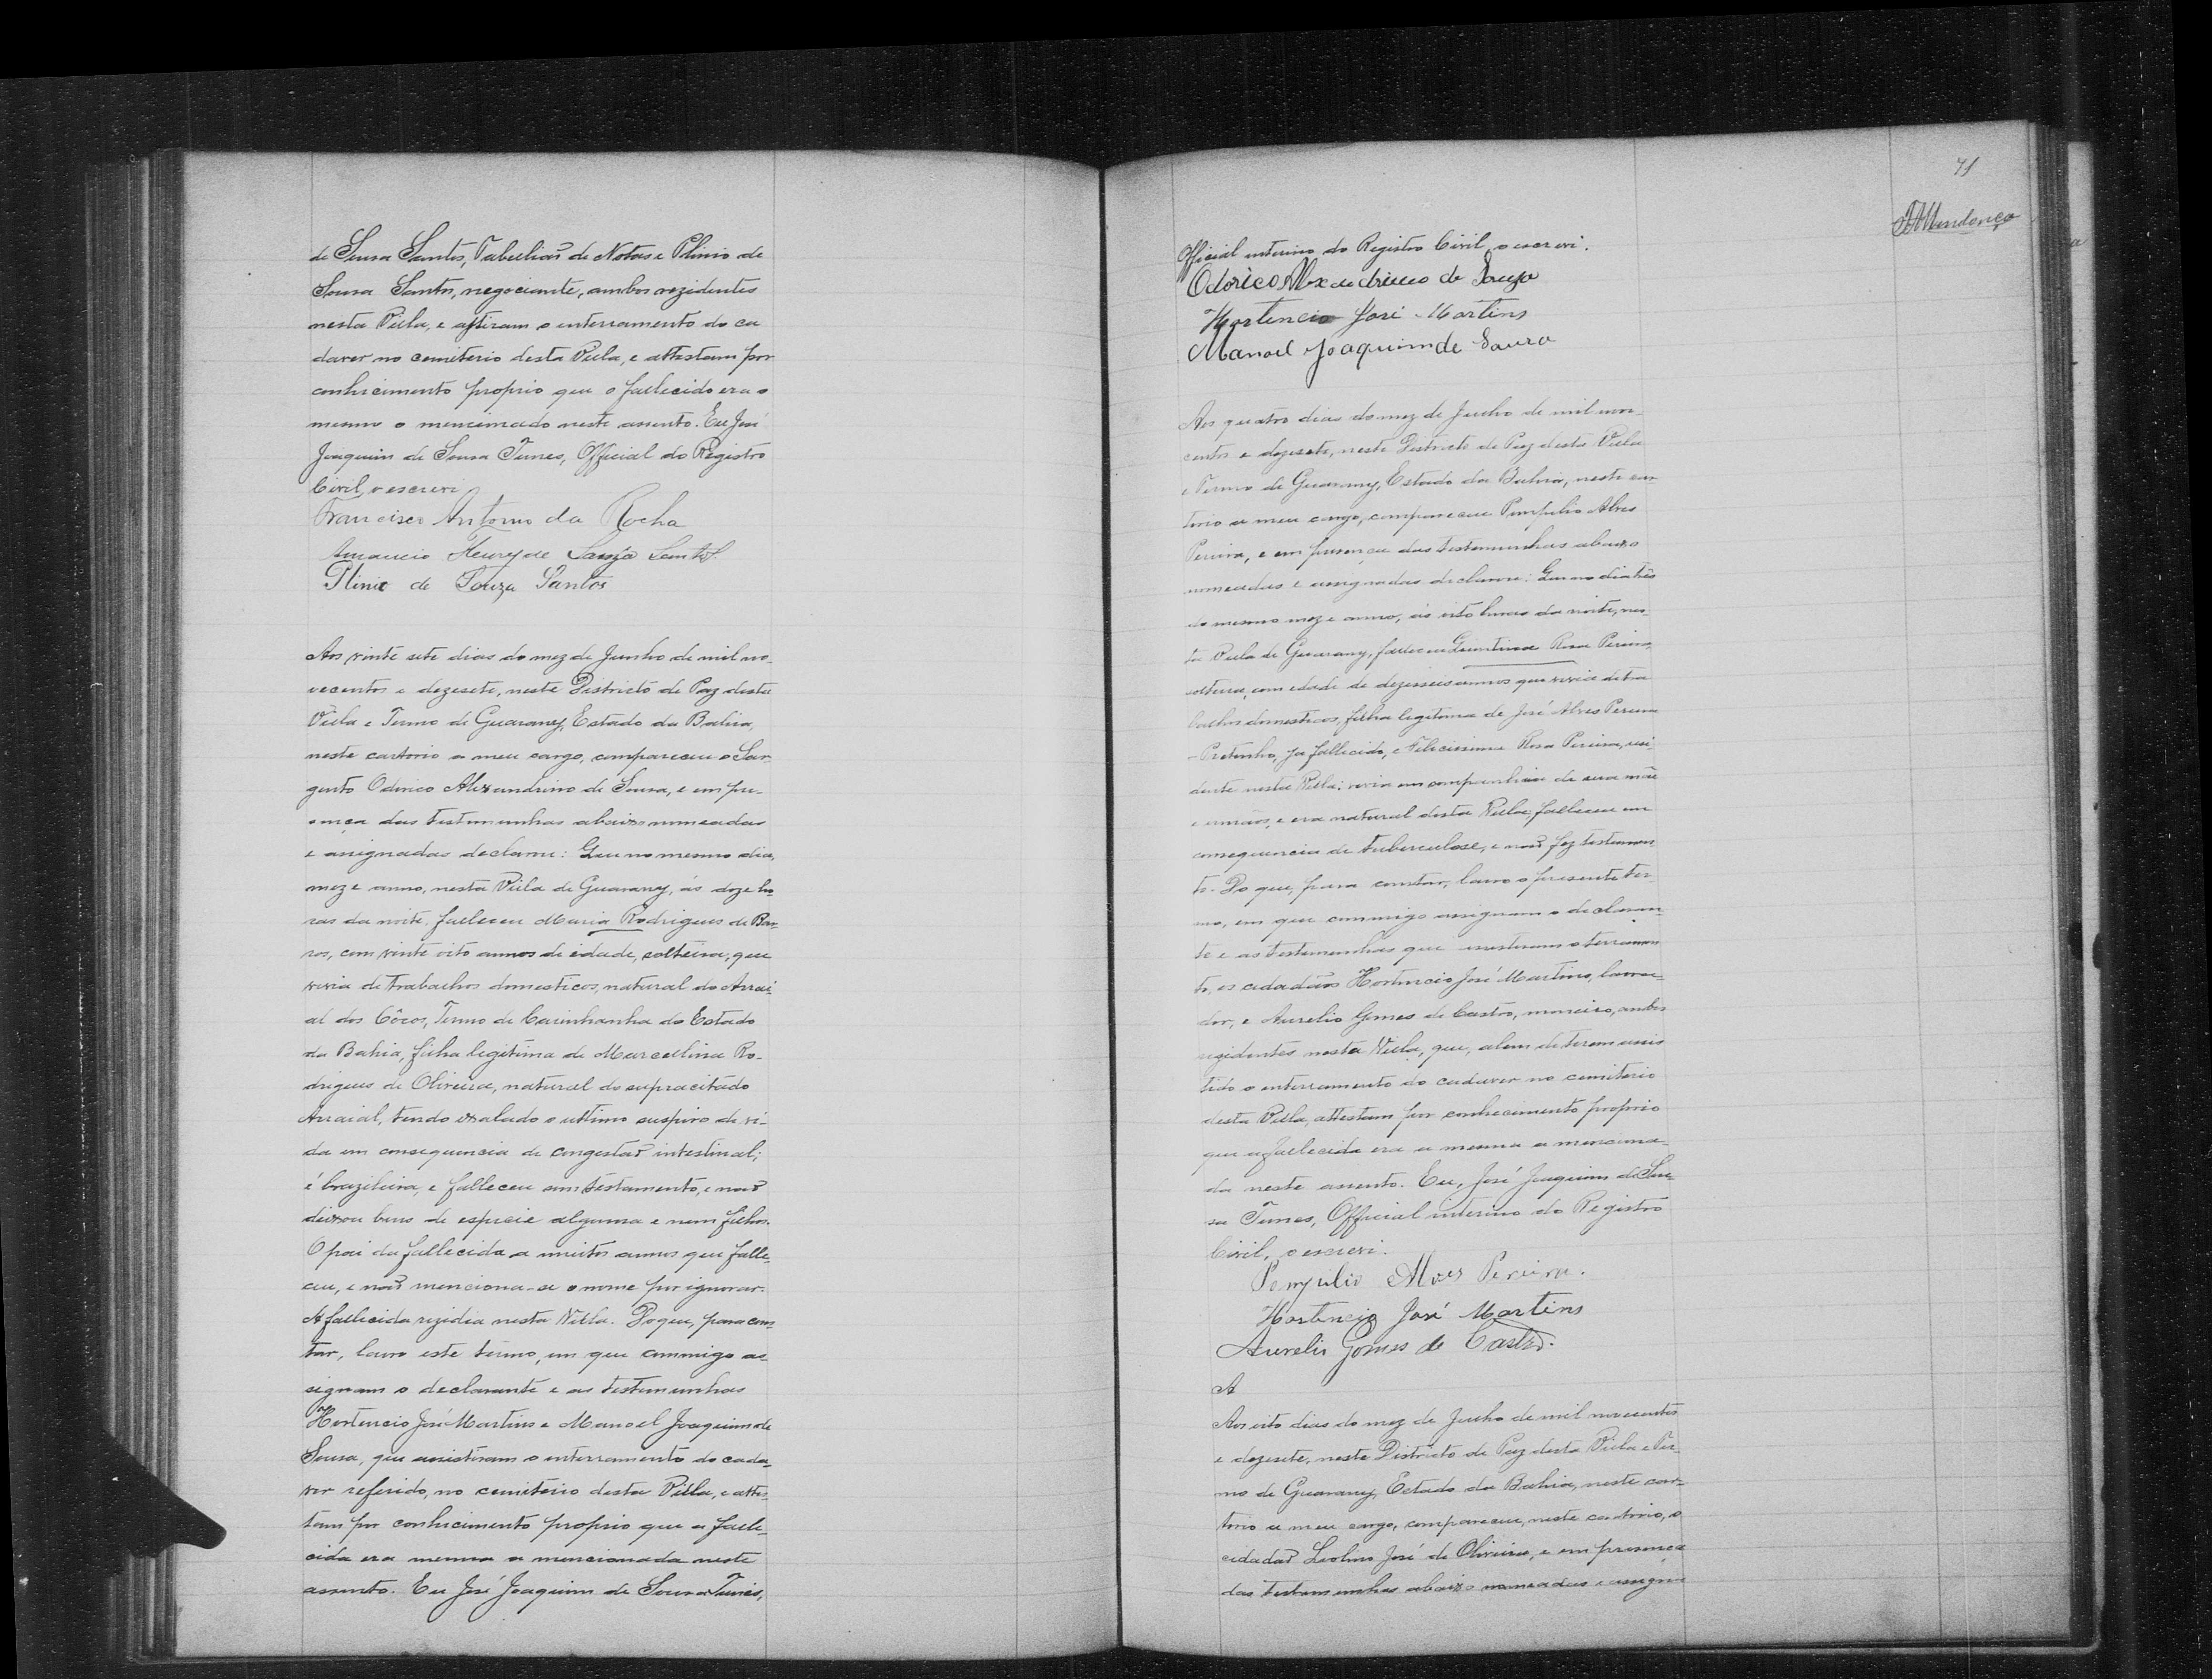 de Sousa Santos, Tabelliaõ de Notas e Plinio de
Sousa Santos, negociante, ambos rezidentes
nesta Villa, e assistiram o enterramento do ca
daver no cemiterio desta Villa, e attestam por
conhecimento proprio que o fallecido era o
mesmo o mencionado neste assento. Eu José
Joaquim de Sousa Tunes, Official do Registro
Civil, o escrevi
Francisco Antonio da Rocha
Amancio Henrique Souza Santos.
Plinio de Souza Santos
Aos vinte sete dias do mez de Junho de mil no-
vecentos e dezesete, neste Districto de Paz desta
Villa e Termo de Guarany, Estado da Bahia,
neste cartorio a meu cargo, compareceu o Sar-
gento Odorico Alexandrino de Sousa, e em pre-
sença das testemunhas abaixo nomeadas
e assignadas declarou: Que no mesmo dia,
mez e anno, nesta Villa de Guarany, ás doze ho-
ras da noite, falleceu Maria Rodrigues de Bar-
ros, com vinte oito annos de idade, solteira, que
vivia de trabalhos domesticos, natural do Arrai-
al dos Côcos, Termo de Carinhanha do Estado
da Bahia, filha legitima de Marcellina Ro-
drigues de Oliveira, natural do supracitado
Arraial, tendo exalado o ultimo suspiro de vi-
da em consequencia de congestaõ intestinal;
é brazileira, e falleceu sem testamento, e naõ
deixou bens de especie alguma e nem filhos.
O pai da fallecida a muitos annos que falle-
ceu, e naõ menciona-se o nome por ignorar.
A fallecida rezidia nesta Villa. Do que, para cons-
tar, lavro este termo, em que commigo as-
signam o declarante e as testemunhas
Hortencio José Martins e Manoel Joaquim de
Sousa, que assistiram o enterramento do cada-
ver referido, no cemiterio desta Villa, e attes-
tam por conhecimento proprio que a falle-
cida era mesma a mencionada neste
assento. Eu José Joaquim de Sousa Tunes,
71
Official interino do Registro Civil, o escrevi.
Odorico Alexandrino de Souza
Hortencio José Martins
Manoel Joaquim de Souza
Aos quatro dias do mez de Julho de mil nove-
centos e dezesete, neste Districto de Paz desta Villa
e Termo de Guarany, Estado da Bahia, neste car-
torio a meu cargo, compareceu Pompilio Alves
Pereira, e em presença das testemunhas abaixo
nomeadas e assignadas declarou: Que no dia três
do mesmo mez e anno, ás oito horas da noite, nes-
ta Villa de Guarany, falleceu Quintina Rosa Pereira,
solteira, com edade de dezesseis annos que vivia de tra
balhos domesticos, filha legitima de José Alves Pereira
- Pretinho, ja fallecido, e Felicissima Rosa Pereira, resi-
dente nesta Villa; vivia em companhia de sua mãe
e irmãos, e era natural desta Villa; falleceu em
consequencia de tuberculose, e naõ fez testamen
to. Do que, para constar, lavro o presente ter-
mo, em que commigo assignam o declaran-
te e as testemunhas que assistiram o terramen
to, os cidadãos Hortencio José Martins, lavra-
dor, e Aurelio Gomes de Castro, marcineiro, ambos
rezidentes nesta Villa, que, alem de terem assis
tido o enterramento do cadaver no cemiterio
desta Villa, attestam por conhecimento proprio
que a fallecida era a mesma a menciona-
da neste assento. Eu, José Joaquim de Sou-
sa Tunes, Official interino do Registro
Civil, o escrevi.
Pompilio Alves Pereira.
Hortencio José Martins
Aurelio Gomes de Castro.
A
Aos oito dias do mez de Julho de mil novecentos
e dezesete, neste Districto de Paz desta Villa e Ter-
mo de Guarany, Estado da Bahia, neste car-
torio a meu cargo, compareceu, neste cartorio, o
cidadaõ Leolino José de Oliveira, e em presença
das testemunhas abaixo nomeadas e assigna